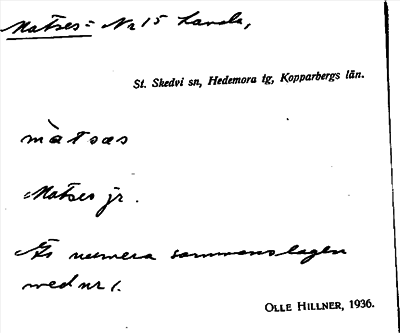 Matses: Nr 15 Landa,
St. Skedvi sn, Hedemora tg, Kopparbergs län.
màtsas
Matses jr.
Är numera sammanslagen
med nr 1.
OLLE HILLNER, 1936.